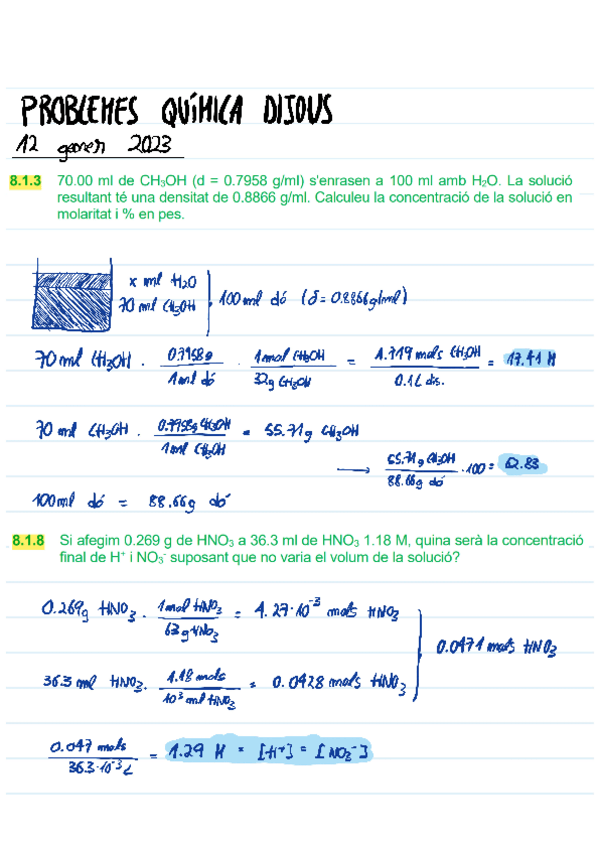 PROBLEMES QUÍMICA DIJOUS
12 gener 2023
8.1.3 70.00 ml de CH₃OH (d = 0.7958 g/ml) s'enrasen a 100 ml amb H₂O. La solució
resultant té una densitat de 0.8866 g/ml. Calculeu la concentració de la solució en
molaritat i % en pes.
x ml H₂O
70 ml CH₃OH
100 ml dó (δ = 0.8866 g/ml)
70 ml CH₃OH · 0.7958 g / 1 ml dó · 1 mol CH₃OH / 32 g CH₃OH = 1.719 mols CH₃OH / 0.1 L dis. = 17.41 M
70 ml CH₃OH · 0.7958 g CH₃OH / 1 ml CH₃OH = 55.71 g CH₃OH
→ 55.71 g CH₃OH / 88.66 g dó · 100 = 62.83
100 ml dó = 88.66 g dó
8.1.8 Si afegim 0.269 g de HNO₃ a 36.3 ml de HNO₃ 1.18 M, quina serà la concentració
final de H⁺ i NO₃⁻ suposant que no varia el volum de la solució?
0.269 g HNO₃ · 1 mol HNO₃ / 63 g HNO₃ = 4.27·10⁻³ mols HNO₃
0.0471 mols HNO₃
36.3 ml HNO₃ · 1.18 mols / 10³ ml HNO₃ = 0.0428 mols HNO₃
0.047 mols / 36.3·10⁻³ L = 1.29 M = [H⁺] = [NO₃⁻]